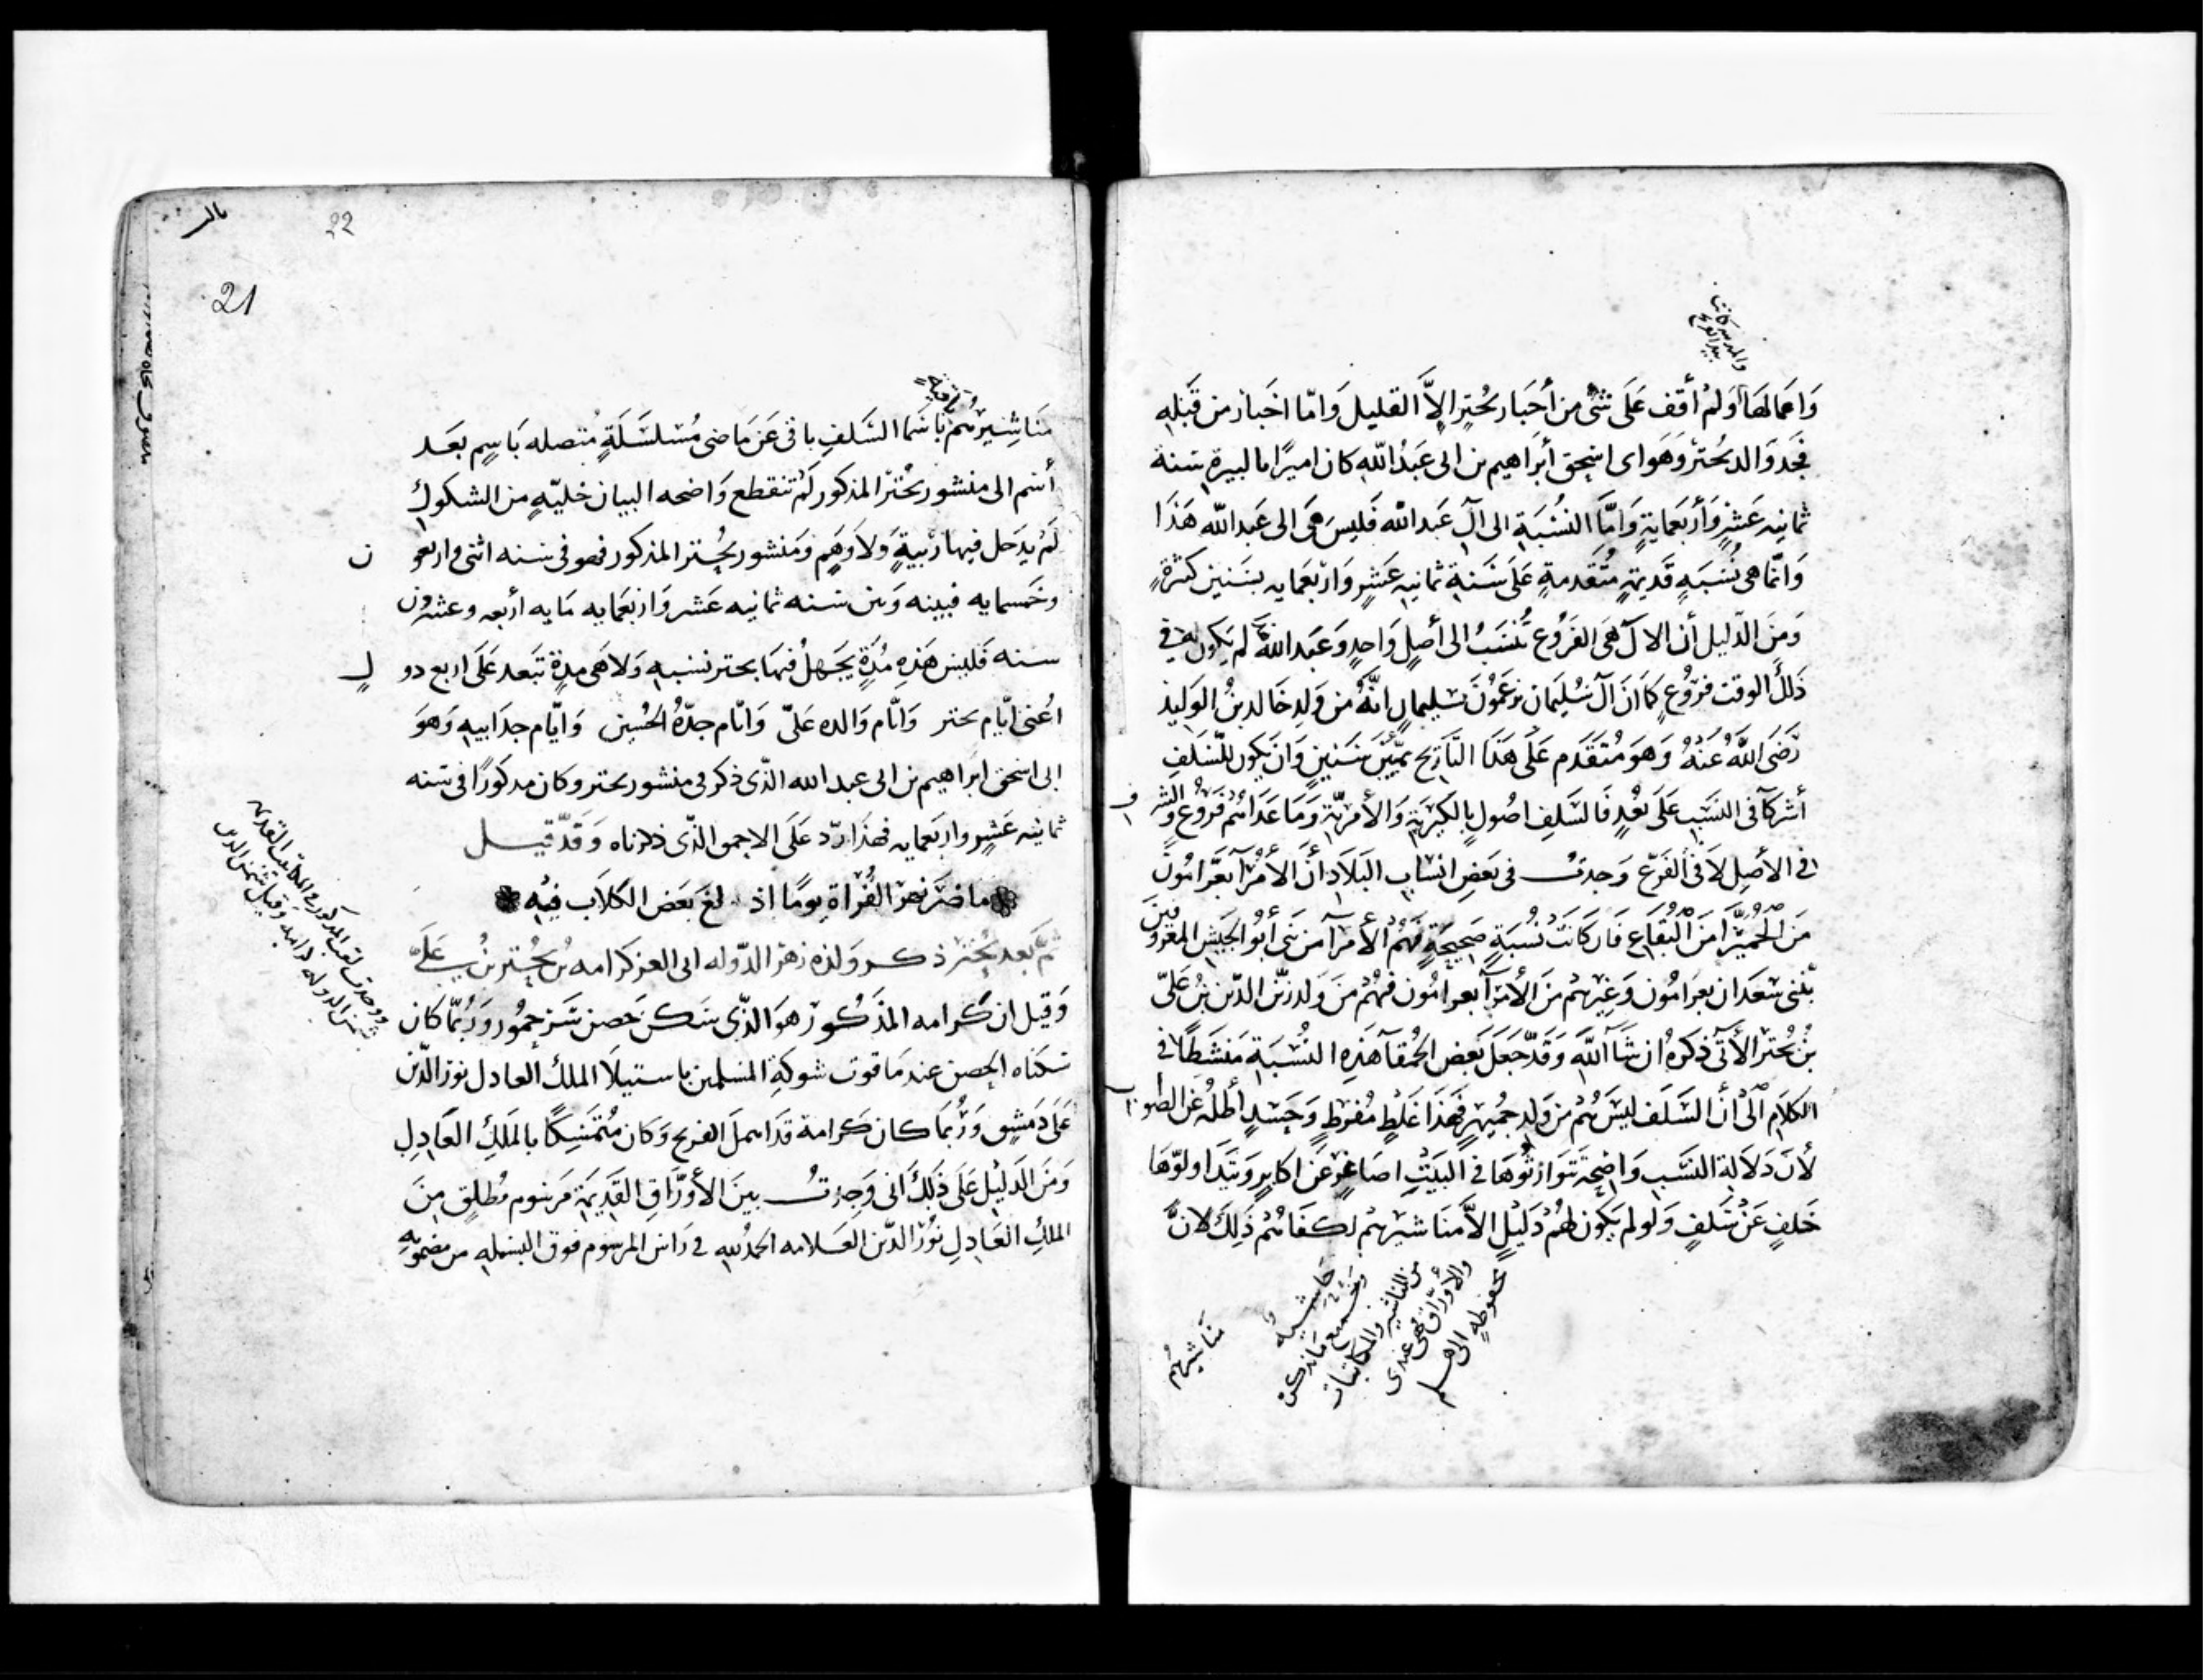 واعمالها ولم أقف على شى من أخبار بحتر إلاّ القليل واما اخبار من قبله
فجد والد بحتر وهو ابى اسحق أبراهيم بن ابى عبد الله كان اميرًا بالبيرة سنة
ثمانيه عشر وأربعماية وامّا النسبة الى آل عبد الله فليس هى الى عبد الله هذا
وانّما هى نسبه قديمة متقدمة على سنة ثمانيه عشر واربعمايه بسنين كثرة
ومن الدليل أن الال هى الفروع تنسب الى أصل واحد وعبد الله لم يكون له فى
ذلك الوقت فروع كما ان آل سليمان يزعمون سليمان انّه من ولد خالد بن الوليد
رضى الله عنه وهو متقدم على هذا التاريخ بميّين سنين وان يكون للسلف
أشركا فى النسب على بعد فالسلف اصول بالكبرية والأمرية وما عداهم فروع والشرف
فى الأصل لا فى الفرع وجدت فى بعض انساب البلاد أن الأمرآ بعرامون
من الحميرا من البقاع فان كانت نسبة صحيحة فهم الأمرآ من بنى أبو الجيش المعروفين
ببنى سعدان بعرامون وغيرهم من الأمرآ بعرامون فهم من ولد زين الدين بن على
بن بحتر الأتى ذكره ان شآ الله وقد جعل بعض الحمقآ هذه النسبة منشطًا فى
الكلام الى أن السلف ليس هم من ولد جميهر فهذا غلط مفرط وحسد أطله عن الصواب
لأن دلالة النسب واضحة تتوارثوها فى البيت اصاغر عن اكابر ويتداولوها
خلف عن سلف ولو لم يكون لهم دليل الاّ مناشيرهم لكفاهم ذلك لانّ
حاشيه
وجميع ما نذكره
من المناشير والمكاتبات
والأوراق فهى عندى
محفوظه الى
مناشيرهم
22
21
مناشيرهم باسما السلف باقى عن ماضى مسلسلة متصله باسم بعد
أسم الى منشور بحتر المذكور لم تنقطع واضحه البيان خليّه من الشكوك
لم يدخل فيها ريبة ولا وهم ومنشور بحتر المذكور فهو فى سنه اثنى واربعون
وخمسمايه فبينه وبين سنه ثمانيه عشر واربعمايه مايه أربعه وعشرون
سنه فليس هذه مدة يجهل فيها بحتر نسبه ولا هى مدة تبعد على اربع دول
اعنى ايّام بحتر وايّام والده علىّ وايّام جدّه الحسين وايّام جد ابيه وهو
ابى اسحق ابراهيم بن ابى عبد الله الذّى ذكر فى منشور بحتر وكان مذكورًا فى سنه
ثمانيه عشر واربعمايه فهذا ردّ على الاحمق الذّى ذكرناه وقد قيل
ما ضر نهر الفراة يومًا اذ ولغ بعض الكلاب فيه
ثم بعد بحتر ذكر ولده زهر الدوله ابى العز كرامه بن بحتر بن على
وقيل ان كرامه المذكور هو الذّى سكن حصن سرحمور وربما كان
سكناه الحصن عند ما قوت شوكة المسلمين باستيلا الملك العادل نور الدين
على دمشق وربما كان كرامة قد اهمل الفرنج وكان متمسكًا بالملك العادل
ومن الدليل على ذلك أنى وجدت بين الأوراق القديمة مرسوم مطلق من
الملك العادل نور الدّين العلامه الحمد لله فى راس المرسوم فوق البسمله من مضمونه